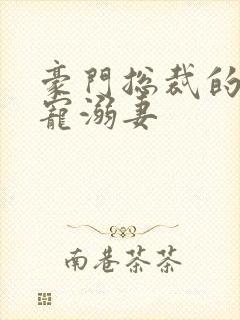 豪門总裁的
寵溺妻
南巷茶茶